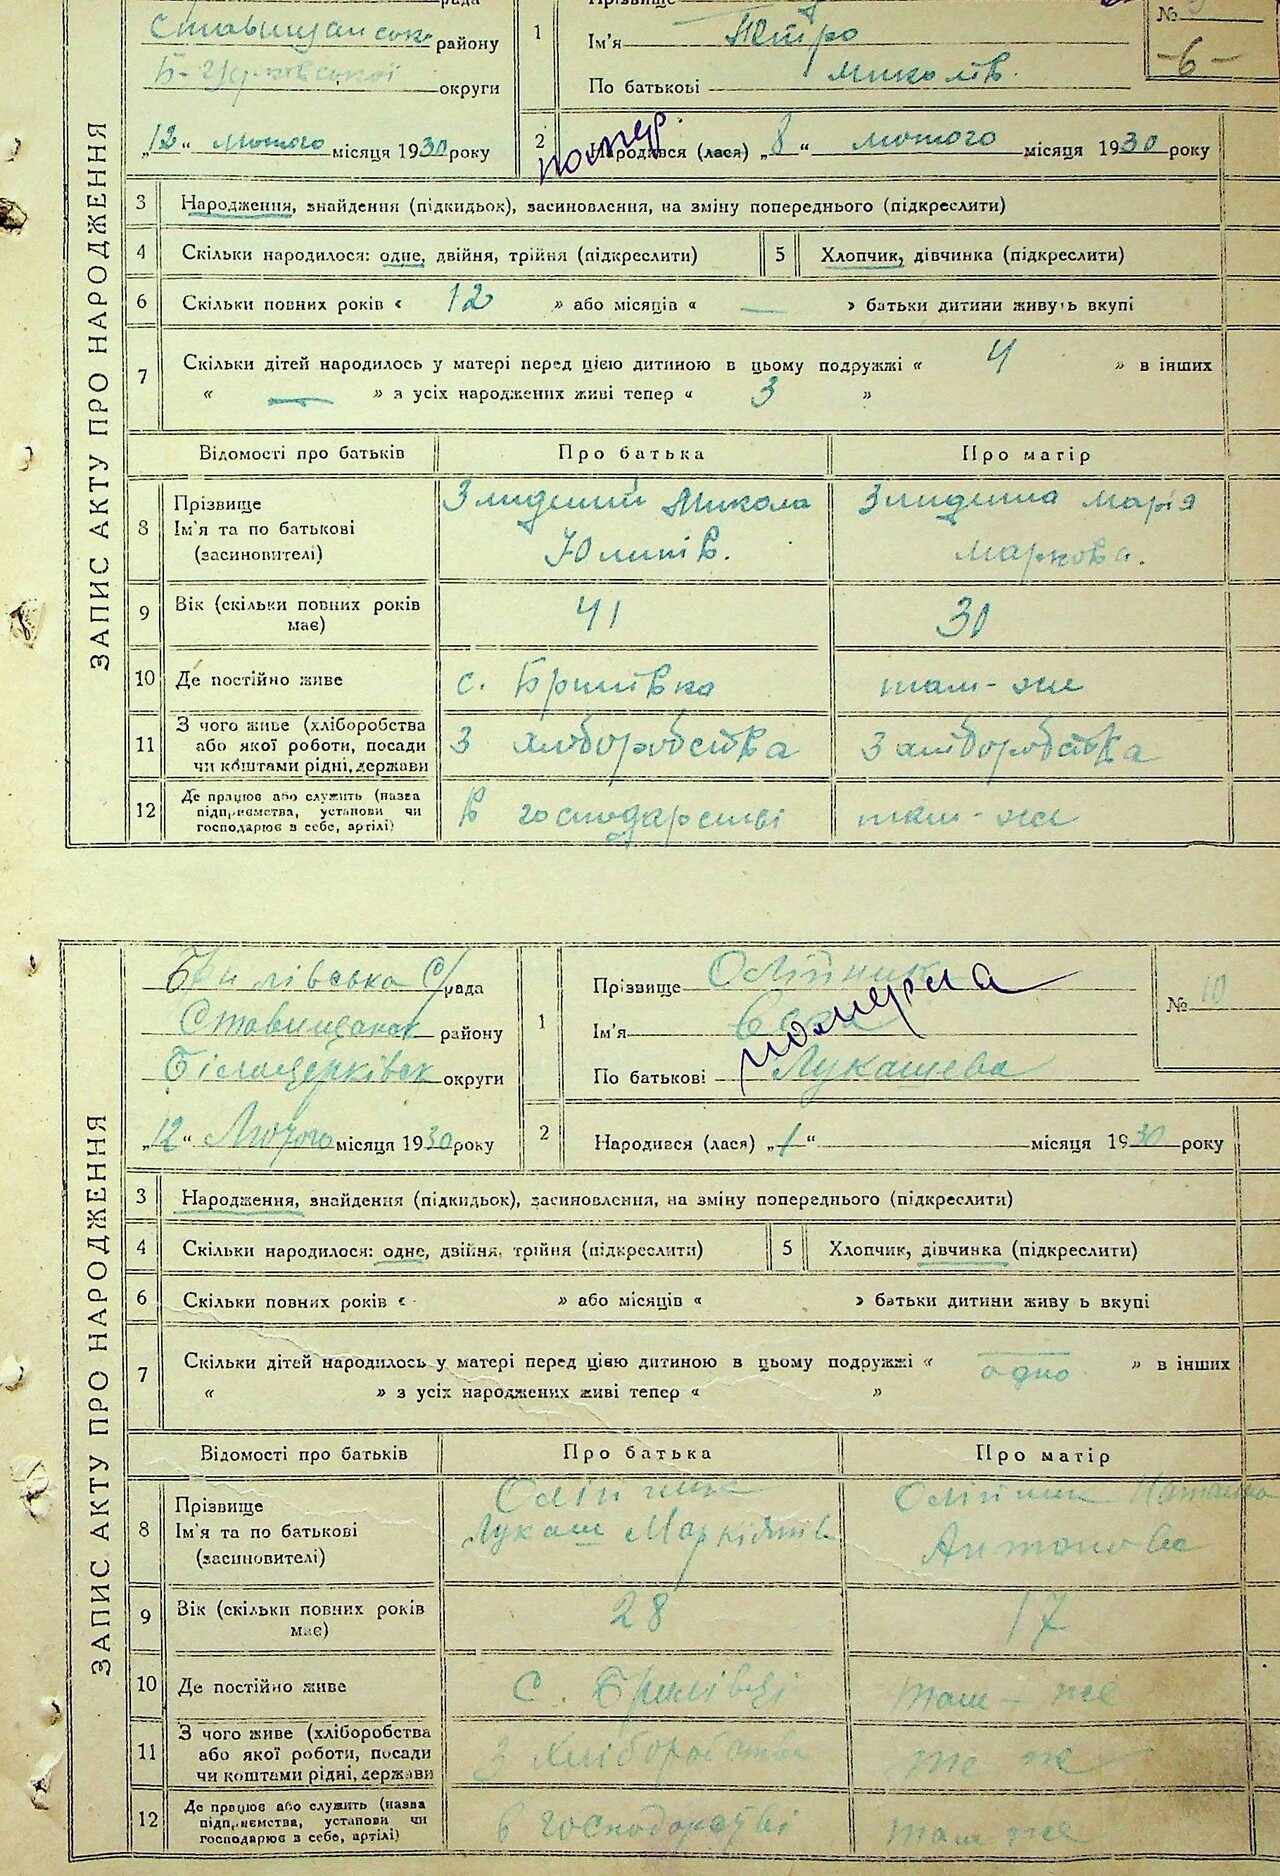 рада
Ставищанськ району
Б-Церківської округи
„12“ лютого місяця 1930 року
ЗАПИС АКТУ ПРО НАРОДЖЕННЯ
1
Прізвище
Ім'я Петро
По батькові Миколів.
№
-6-
помер.
2 Народився (лася) „8“ лютого місяця 1930 року
3 Народження, знайдення (підкидьок), засиновлення, на зміну попереднього (підкреслити)
4 Скільки народилося: одне, двійня, трійня (підкреслити)
5 Хлопчик, дівчинка (підкреслити)
6 Скільки повних років « 12 » або місяців « — » батьки дитини живуть вкупі
7 Скільки дітей народилось у матері перед цією дитиною в цьому подружжі « 4 » в інших
« — » з усіх народжених живі тепер « 3 »
Відомості про батьків Про батька Про матір
8 Прізвище
Ім'я та по батькові
(засиновителі)
Злиденний Микола
Злиденна Марія
Маркова.
9 Вік (скільки повних років має) 41 30
10 Де постійно живе с. Брилівка там-же
11 З чого живе (хліборобства
або якої роботи, посади
чи коштами рідні, держави
З хліборобства З хліборобства
12 Де працює або служить (назва
підприємства, установи чи
господарює в себе, артілі)
В господарстві там-же
ЗАПИС АКТУ ПРО НАРОДЖЕННЯ
Брилівська С/рада
Ставищанськ району
Білоцерківськ округи
„12“ Лютого місяця 1930 року
1
Прізвище Олійник
Ім'я
По батькові Лукашева
померла
№ 10
2 Народився (лася) „1“ місяця 1930 року
3 Народження, знайдення (підкидьок), засиновлення, на зміну попереднього (підкреслити)
4 Скільки народилося: одне, двійня, трійня (підкреслити)
5 Хлопчик, дівчинка (підкреслити)
6 Скільки повних років « » або місяців « » батьки дитини живу ь вкупі
7 Скільки дітей народилось у матері перед цією дитиною в цьому подружжі « одно » в інших
« » з усіх народжених живі тепер « »
Відомості про батьків Про батька Про матір
8 Прізвище
Ім'я та по батькові
(засиновителі)
Олійник
Лукаш Маркіянів
Олійник
Антонова
9 Вік (скільки повних років має) 28 17
10 Де постійно живе с. Брилівці там-же
11 З чого живе (хліборобства
або якої роботи, посади
чи коштами рідні, держави
З хліборобства те же
12 Де працює або служить (назва
підприємства, установи чи
господарює в себе, артілі)
в господарстві там же